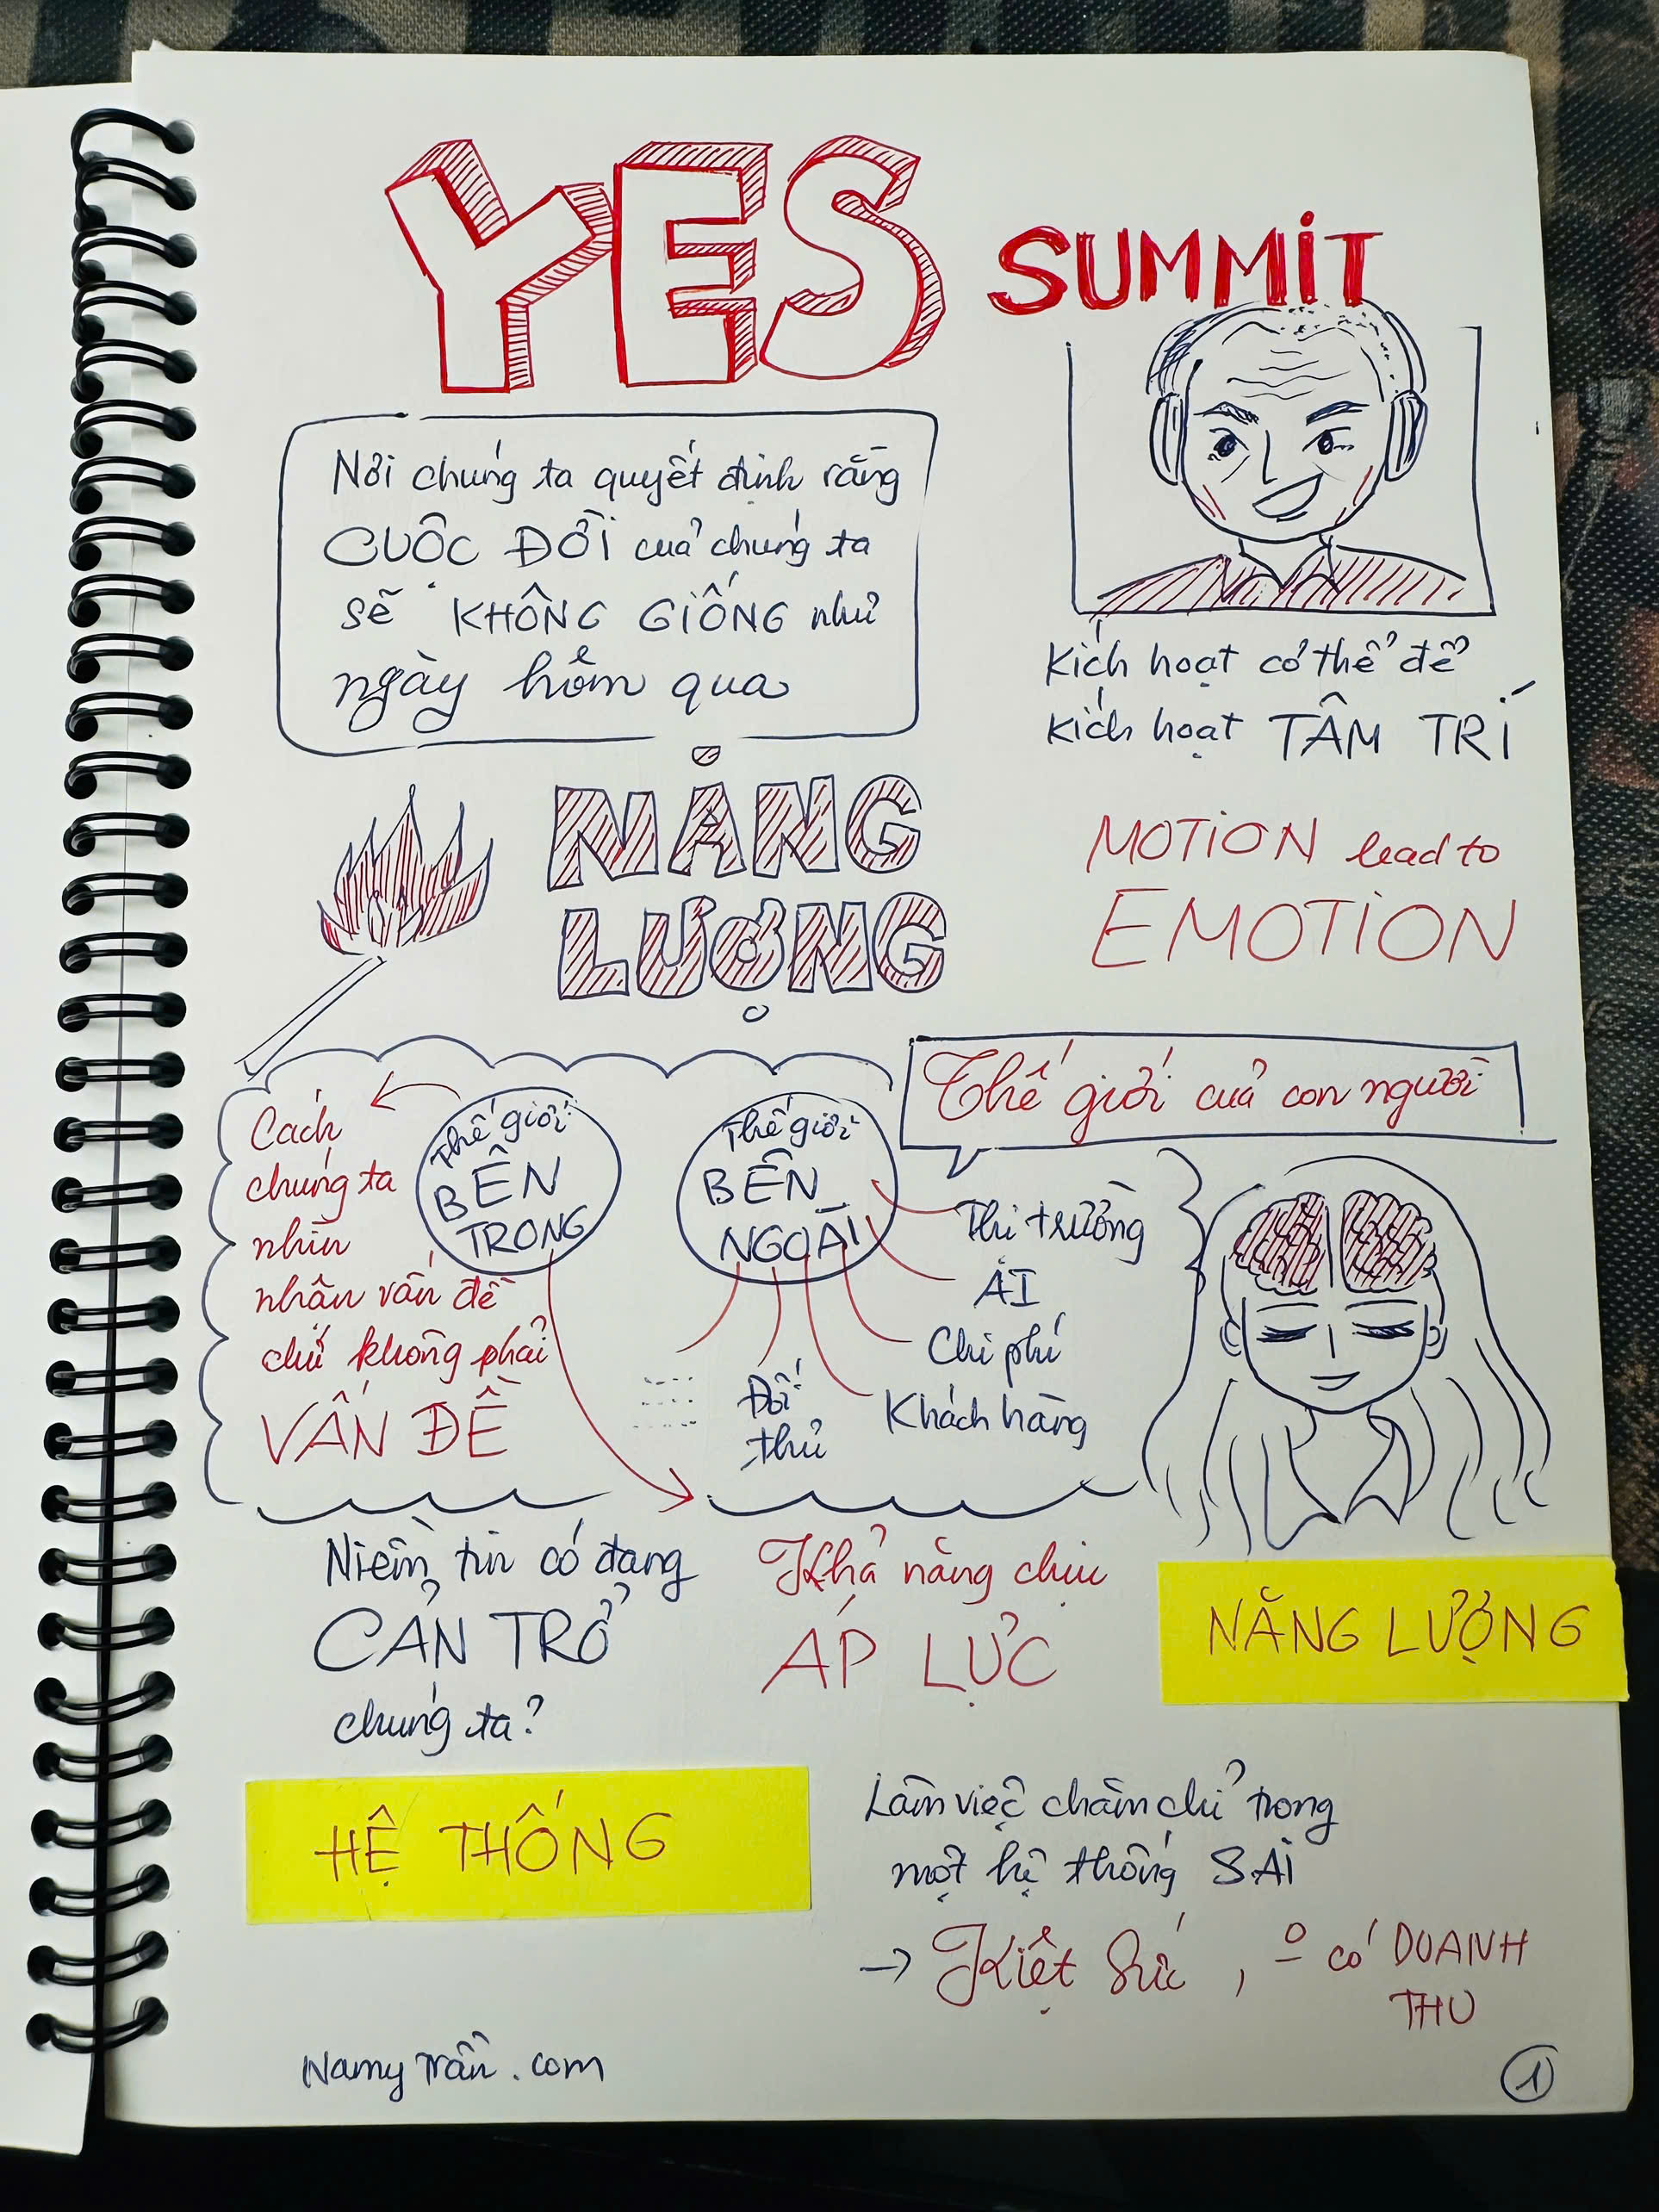 YES SUMMiT
Nơi chúng ta quyết định rằng
CUỘC ĐỜI của chúng ta
sẽ KHÔNG GIỐNG như
ngày hôm qua
Kích hoạt cơ thể để
kích hoạt TÂM TRÍ
NĂNG
LƯỢNG
MOTiON lead to
EMOTiON
Thế giới của con người
Cách
chúng ta
nhìn
nhận vấn đề
chứ không phải
VẤN ĐỀ
Thế giới
BÊN
TRONG
Thế giới
BÊN
NGOÀI
Thị trường
AI
Chi phí
Khách hàng
Đối
thủ
Niềm tin có đang
CẢN TRỞ
chúng ta?
Khả năng chịu
ÁP LỰC
NĂNG LƯỢNG
HỆ THỐNG
Làm việc chăm chỉ trong
một hệ thống SAi
→ Kiệt Sức, o có DOANH
THU
NamyTrần.com
1